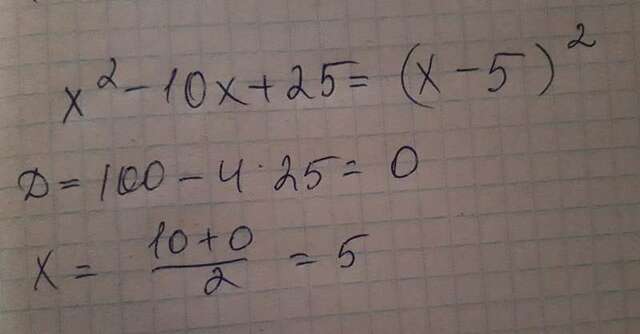 x² - 10x + 25 = (x - 5)²
D = 100 - 4 · 25 = 0
x = (10 + 0)/2 = 5